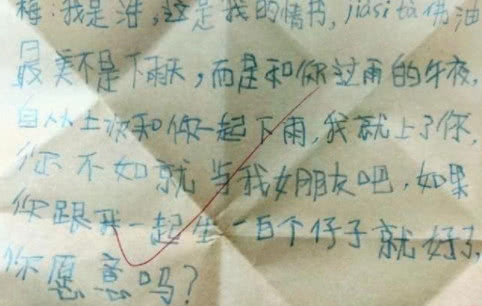 梅:我是浩,这是我的情书,jiasita佛油
最美不是下雨天,而是和你过雨的午夜,
自从上次和你一起下雨,我就上了你,
你不如就当我女朋友吧,如果
你跟我一起生一百个仔子就好了,
你愿意吗?